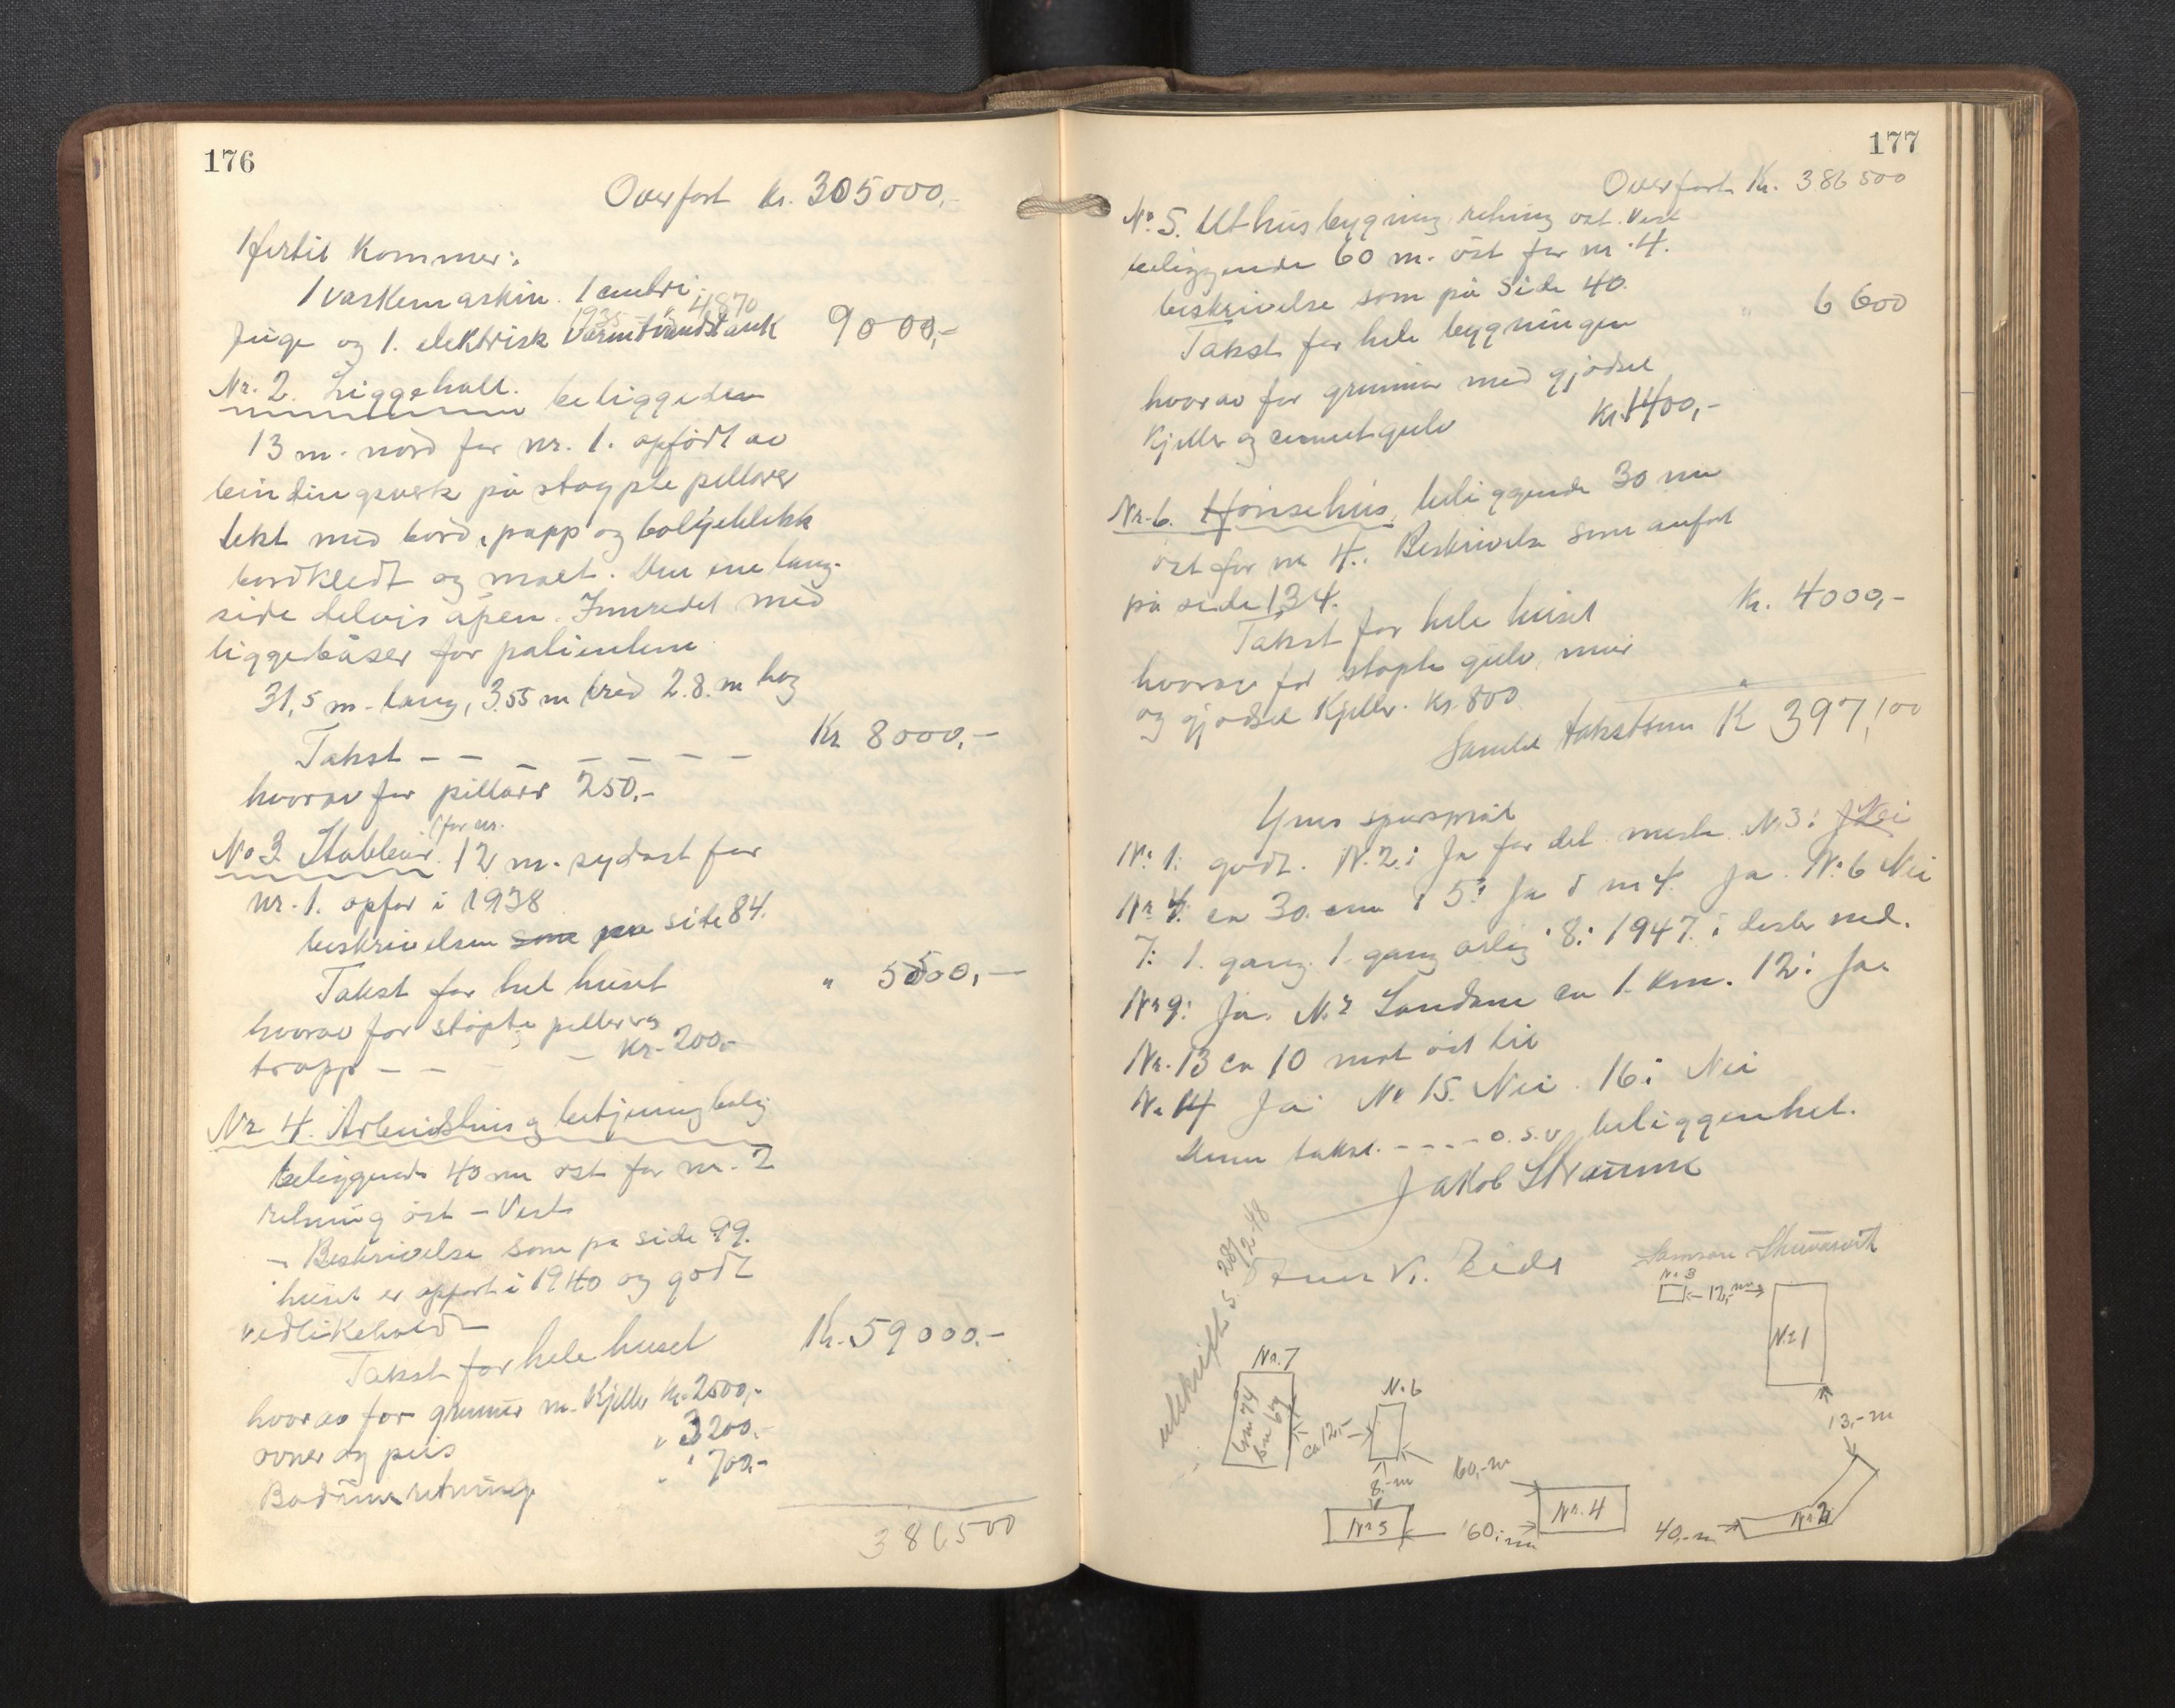 176
Overført kr. 305000,-
Hertil kommer:
1 vaskemaskin. 1 centri-
4870
fuge og 1. elektrisk varmtvandstank 9000,-
Nr. 2. Liggehall. beliggeden
13 m. nord for nr. 1. opført av
bindingsverk på støypte pillarer
tekt med bord, papp og bølgeblikk
bordkledt og malt. Den ene lang-
side delvis åpen. Innredet med
liggebåser for patientene
31,5 m. lang, 3.55 m bred 2.8. m høg
Takst - - - - - - - Kr 8000,-
hvorav for pillarer 250,-
No 3. Stabbur. 12 m. sydøst for
nr. 1. opfør i 1938
beskrivelsen som paa side 84.
Takst for hel huset " 5500,-
hvorav for støpte pillerer og
trapp - - - - Kr. 200,-
Nr 4. Arbeidshus og betjeningbolig
beliggende 40 m øst for nr. 2
retning øst - Vest
- Beskrivelse som på side 99.
huset er opført i 1940 og godt
vedlikeholdt
Takst for hele huset Kr. 59000.-
hvorav for grunnur m. Kjeller kr. 2500,-
ovner og peis " 3200.-
Badinnretning " 700,-
386500
177
Overført Kr. 386500
No. 5. Uthusbygning retning øst. Vest
beliggende 60 m. øst for nr. 4.
beskrivelse som på side 40.
Takst for hele bygningen " 6600
hvorav for grunnur med gjødsel
Kjeller og cementgulv Kr. 1400,-
Nr. 6. Hønsehus, beliggende 30 m
øst for nr 4. Beskrivelse som anført
på side 134.
Takst for hele huset Kr. 4000,-
hvorav for støpte gulv, mur
og gjødsel Kjeller. Kr. 800
Samlet takstsum K 397,100
Ymse spursmål
Nr. 1: godt. N. 2: Ja for det meste. N. 3: Nei
Nr 4: ca 30. cm : 5: Ja i nr 4. Ja. Nr. 6 Nei
7: 1. gang. 1. gang årlig. 8: 1947. i desbr ned.
Nr 9: Ja. Nr Sandane ca 1. km. 12: Ja.
Nr. 13 ca 10 mot øst til
Nr 14 Ja. Nr 15. Nei. 16: Nei
Denne takst. - - - - o.s.v. beliggenhet.
Jakob Straume
V. Eide
Samson Skinnarvik
utskrift s. 28/2-48
Nr. 3
12,- m
Nr 1
13,- m
Nr. 7
gnr 74
bnr 64
ca 12,-
Nr. 6
8.- m
60,- m
Nr 5
60,- m
Nr. 4
40,- m
Nr. 2